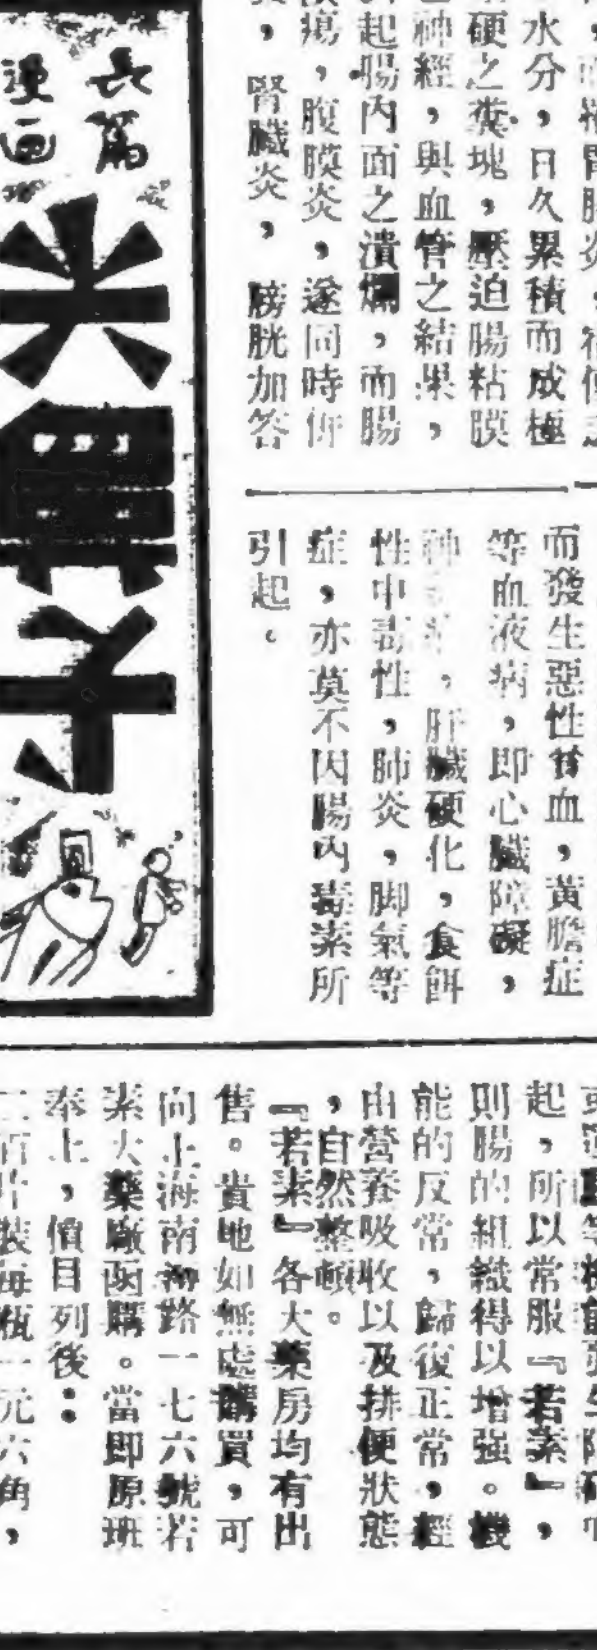 水分，日久累積而成極
硬之糞塊，壓迫腸粘膜
神經，與血管之結果，
起腸內面之潰爛，而腸
瘍，腹膜炎，遂同時併
，腎臟炎，膀胱加答
而發生惡性貧血，黃膽症
等血液病，即心臟障礙，
肝臟硬化，食餌
性中毒性，肺炎，脚氣等
症，亦莫不因腸內毒素所
引起。
長篇
漫画
起，所以常服『若素』，
則腸的組織得以增强。機
能的反常，歸復正常，經
由營養吸收以及排便狀態
，自然整頓。
『若素』各大藥房均有出
售。貴地如無處購買，可
向上海南路一七六號若
素大藥廠函購。當即原班
奉上，價目列後：
二百片裝每瓶一元六角，